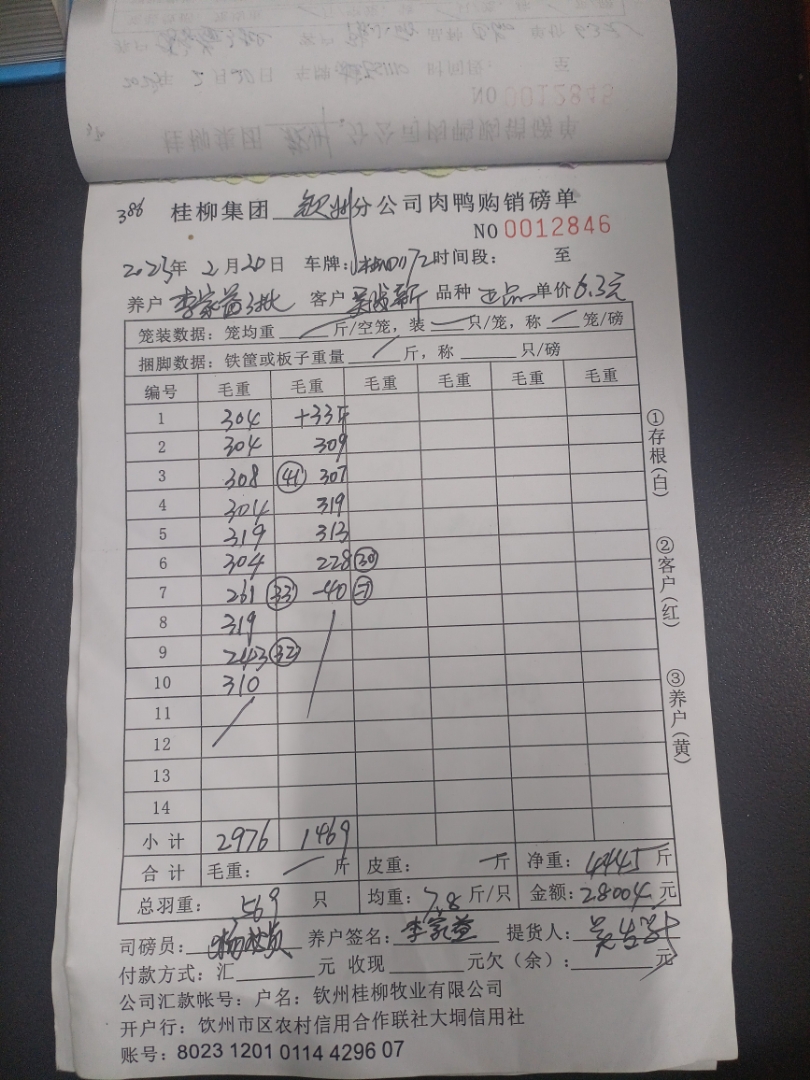 386 桂柳集团 钦州 分公司肉鸭购销磅单
NO 0012846
2023年 2月20日 车牌: 时间段: 至
养户 李家益3批 客户 品种 正品 单价 6.3元
笼装数据: 笼均重 斤/空笼, 装 只/笼, 称 笼/磅
捆脚数据: 铁筐或板子重量 斤, 称 只/磅
编号 毛重 毛重 毛重 毛重 毛重 毛重
1 304 +335
2 304 309
3 308 (41) 307
4 304 319
5 319 313
6 304 228 (30)
7 261 (33) -40
8 319
9 243 (32)
10 310
11
12
13
14
小计 2976 1469
合计 毛重: 斤 皮重: 斤 净重: 4445 斤
总羽重: 569 只 均重: 7.8 斤/只 金额: 28004 元
司磅员: 养户签名: 李家益 提货人:
付款方式: 汇 元 收现 元欠(余): 元
公司汇款帐号: 户名: 钦州桂柳牧业有限公司
开户行: 钦州市区农村信用合作联社大垌信用社
账号: 8023 1201 0114 4296 07
①存根(白)
②客户(红)
③养户(黄)